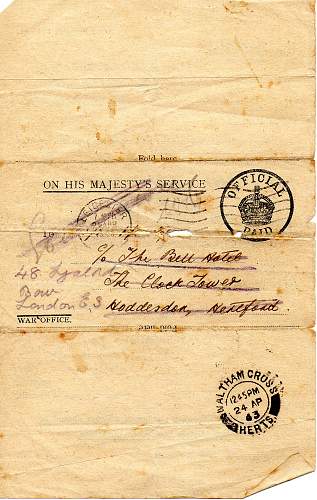 Fold here
ON HIS MAJESTY'S SERVICE
OFFICIAL
PAID
c/o The Bell Hotel
The Clock Tower
Hoddesdon, Hertford.
48
Bow
London E.3
WAR OFFICE.
Fold here
WALTHAM CROSS
12 45 PM
24 AP
43
HERTS.